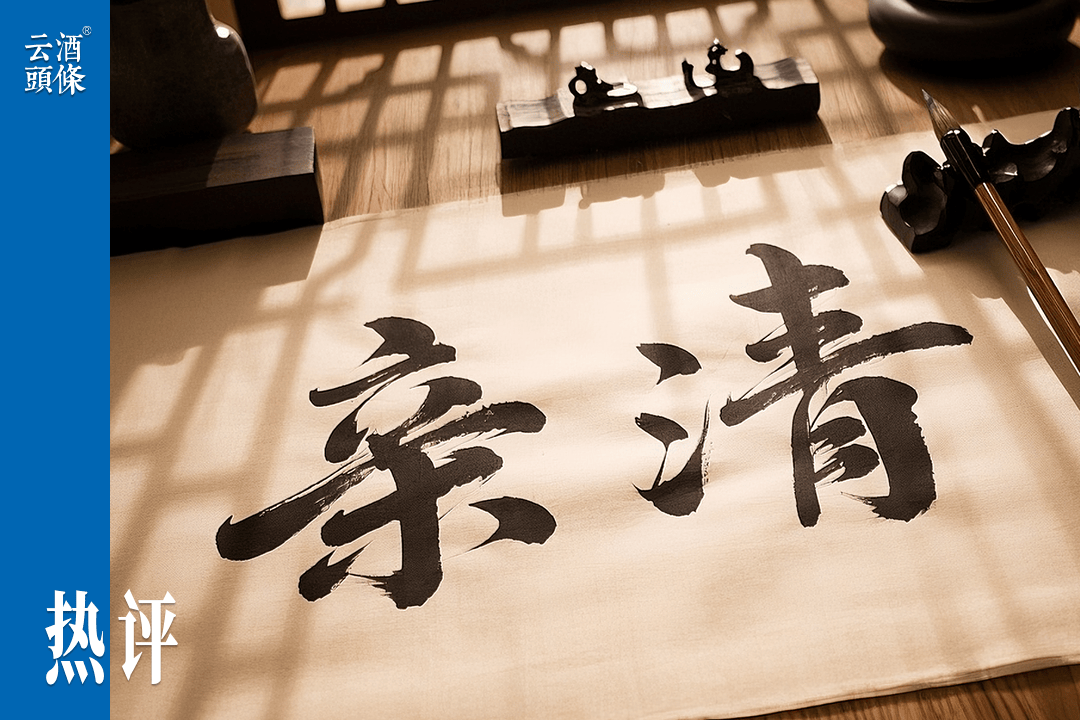 云酒
頭條®
亲清
热评